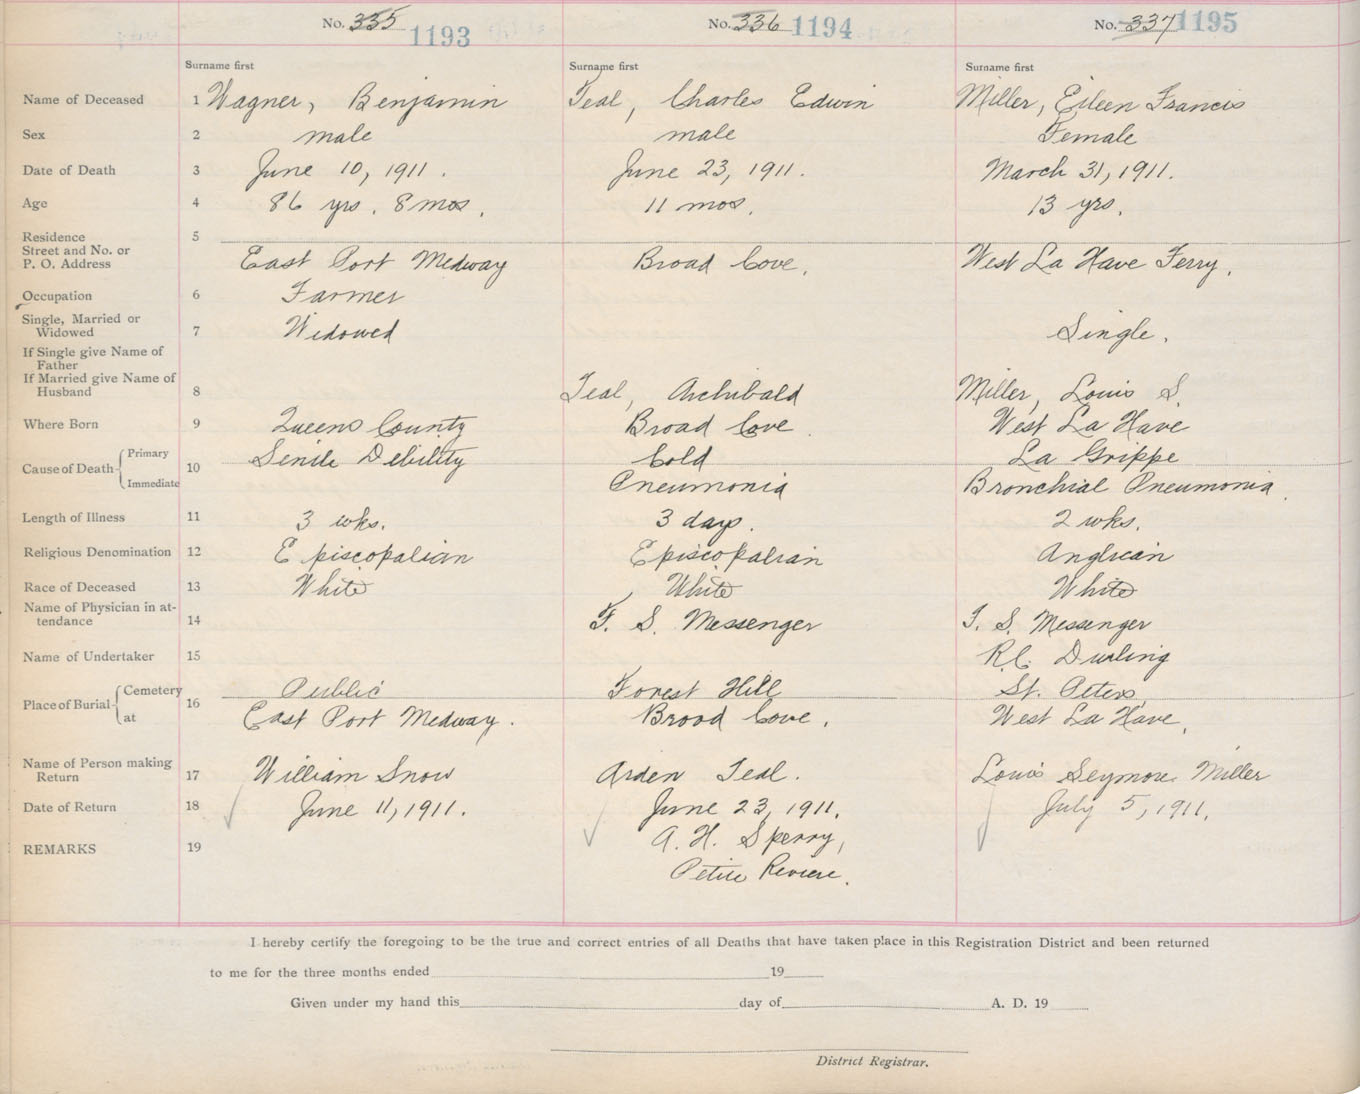 No. 335 1193
No. 336 1194
No. 337 1195
Surname first
Surname first
Surname first
Name of Deceased 1 Wagner, Benjamin
Teal, Charles Edwin
Miller, Eileen Francis
Sex 2 male
male
Female
Date of Death 3 June 10, 1911.
June 23, 1911.
March 31, 1911.
Age 4 86 yrs. 8 mos.
11 mos.
13 yrs.
Residence 5
Street and No. or
P. O. Address
East Port Medway
Broad Cove.
West La Have Ferry.
Occupation 6 Farmer
Single, Married or
Widowed 7 Widowed
Single.
If Single give Name of
Father
If Married give Name of
Husband 8
Teal, Archibald
Miller, Louis S.
Where Born 9 Queens County
Broad Cove
West La Have
Cause of Death Primary 10 Senile Debility
Cold
La Grippe
Immediate
Pneumonia
Bronchial Pneumonia.
Length of Illness 11 3 wks.
3 days.
2 wks.
Religious Denomination 12 Episcopalian
Episcopalian
Anglican
Race of Deceased 13 White
White
White
Name of Physician in at-
tendance 14
F. S. Messenger
F. S. Messenger
Name of Undertaker 15
R.C. Durling
Place of Burial Cemetery 16 Public
Forest Hill
St. Peters
at East Port Medway.
Broad Cove.
West La Have.
Name of Person making
Return 17 William Snow
Arden Teal.
Louis Seymore Miller
Date of Return 18 June 11, 1911.
June 23, 1911.
July 5, 1911.
REMARKS 19
A. H. Sperry,
Petite Reviere.
I hereby certify the foregoing to be the true and correct entries of all Deaths that have taken place in this Registration District and been returned
to me for the three months ended 19
Given under my hand this day of A. D. 19
District Registrar.